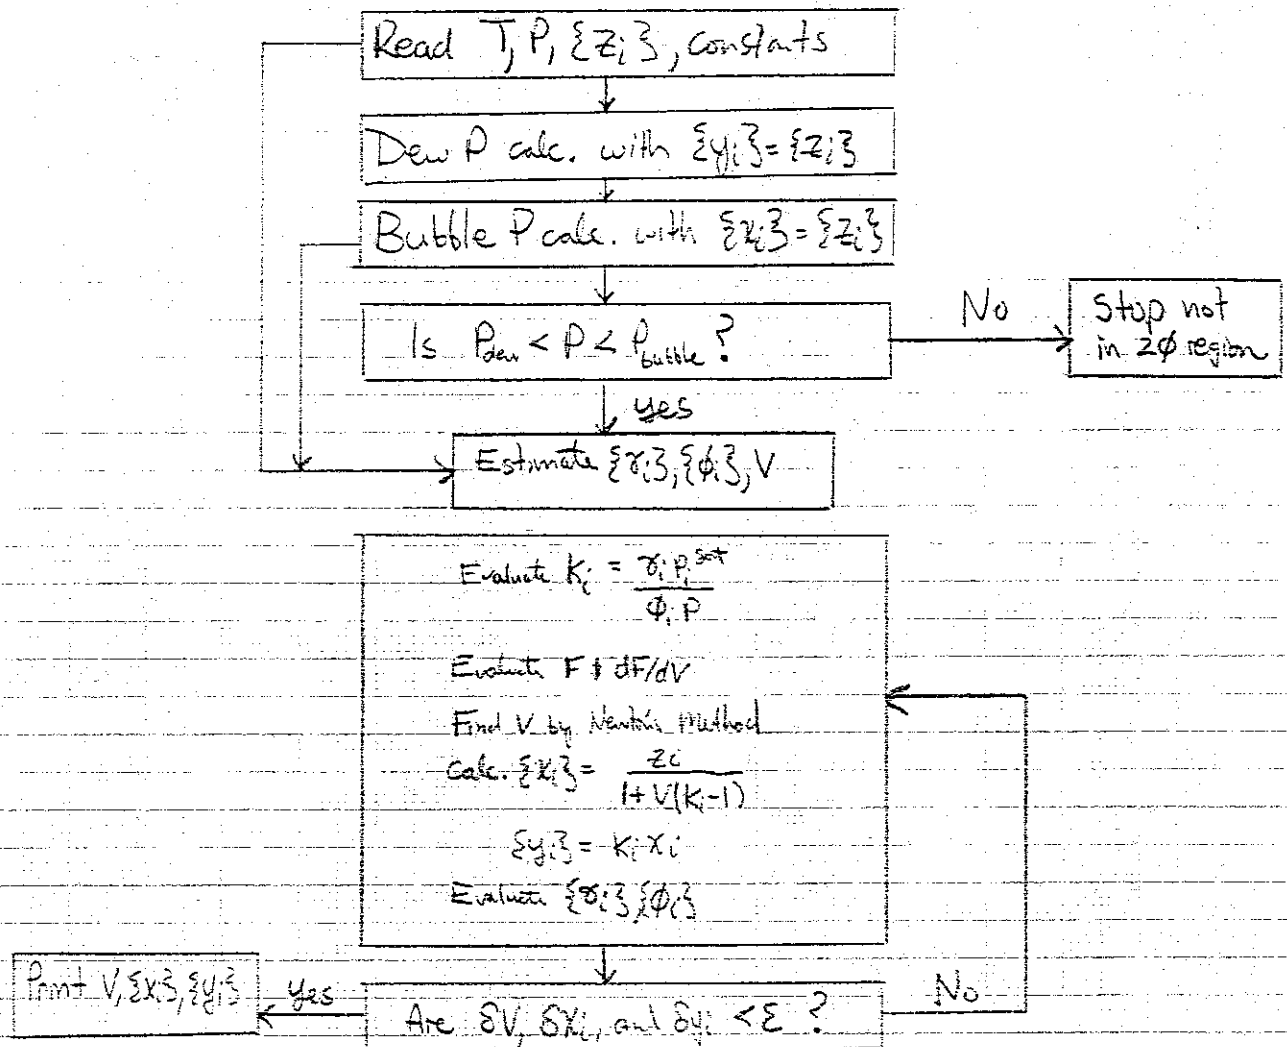 Read T, P, {zi}, constants
Dew P calc. with {yi} = {zi}
Bubble P calc. with {xi} = {zi}
Is Pdew < P < Pbubble ?
No
Stop not
in 2ϕ region
yes
Estimate {γi}, {ϕi}, V
Evaluate Ki = γi Pi^sat / ϕi P
Evaluate F & dF/dV
Find V by Newton's Method
Calc. {xi} = zi / 1+V(Ki-1)
{yi} = Ki xi
Evaluate {γi} {ϕi}
Print V, {xi}, {yi}
yes
Are δV, δxi, and δyi < ε ?
No